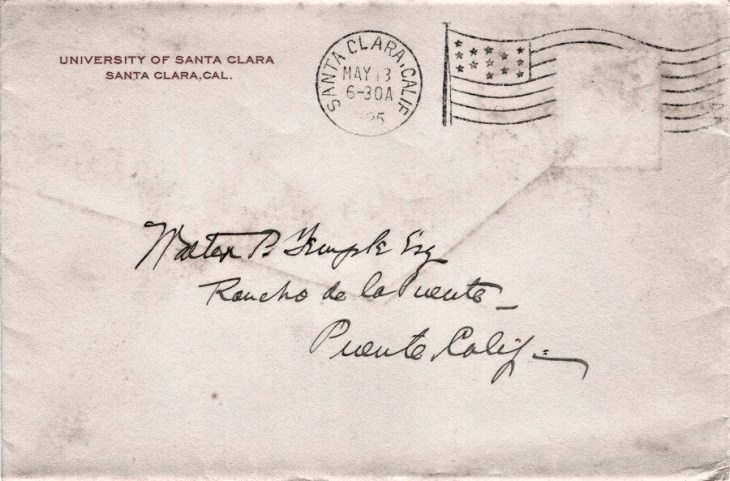 UNIVERSITY OF SANTA CLARA
SANTA CLARA, CAL.
SANTA CLARA, CALIF
MAY 13
6-30A
25
Walter P. Temple Esq
Rancho de la Puente
Puente Calif.